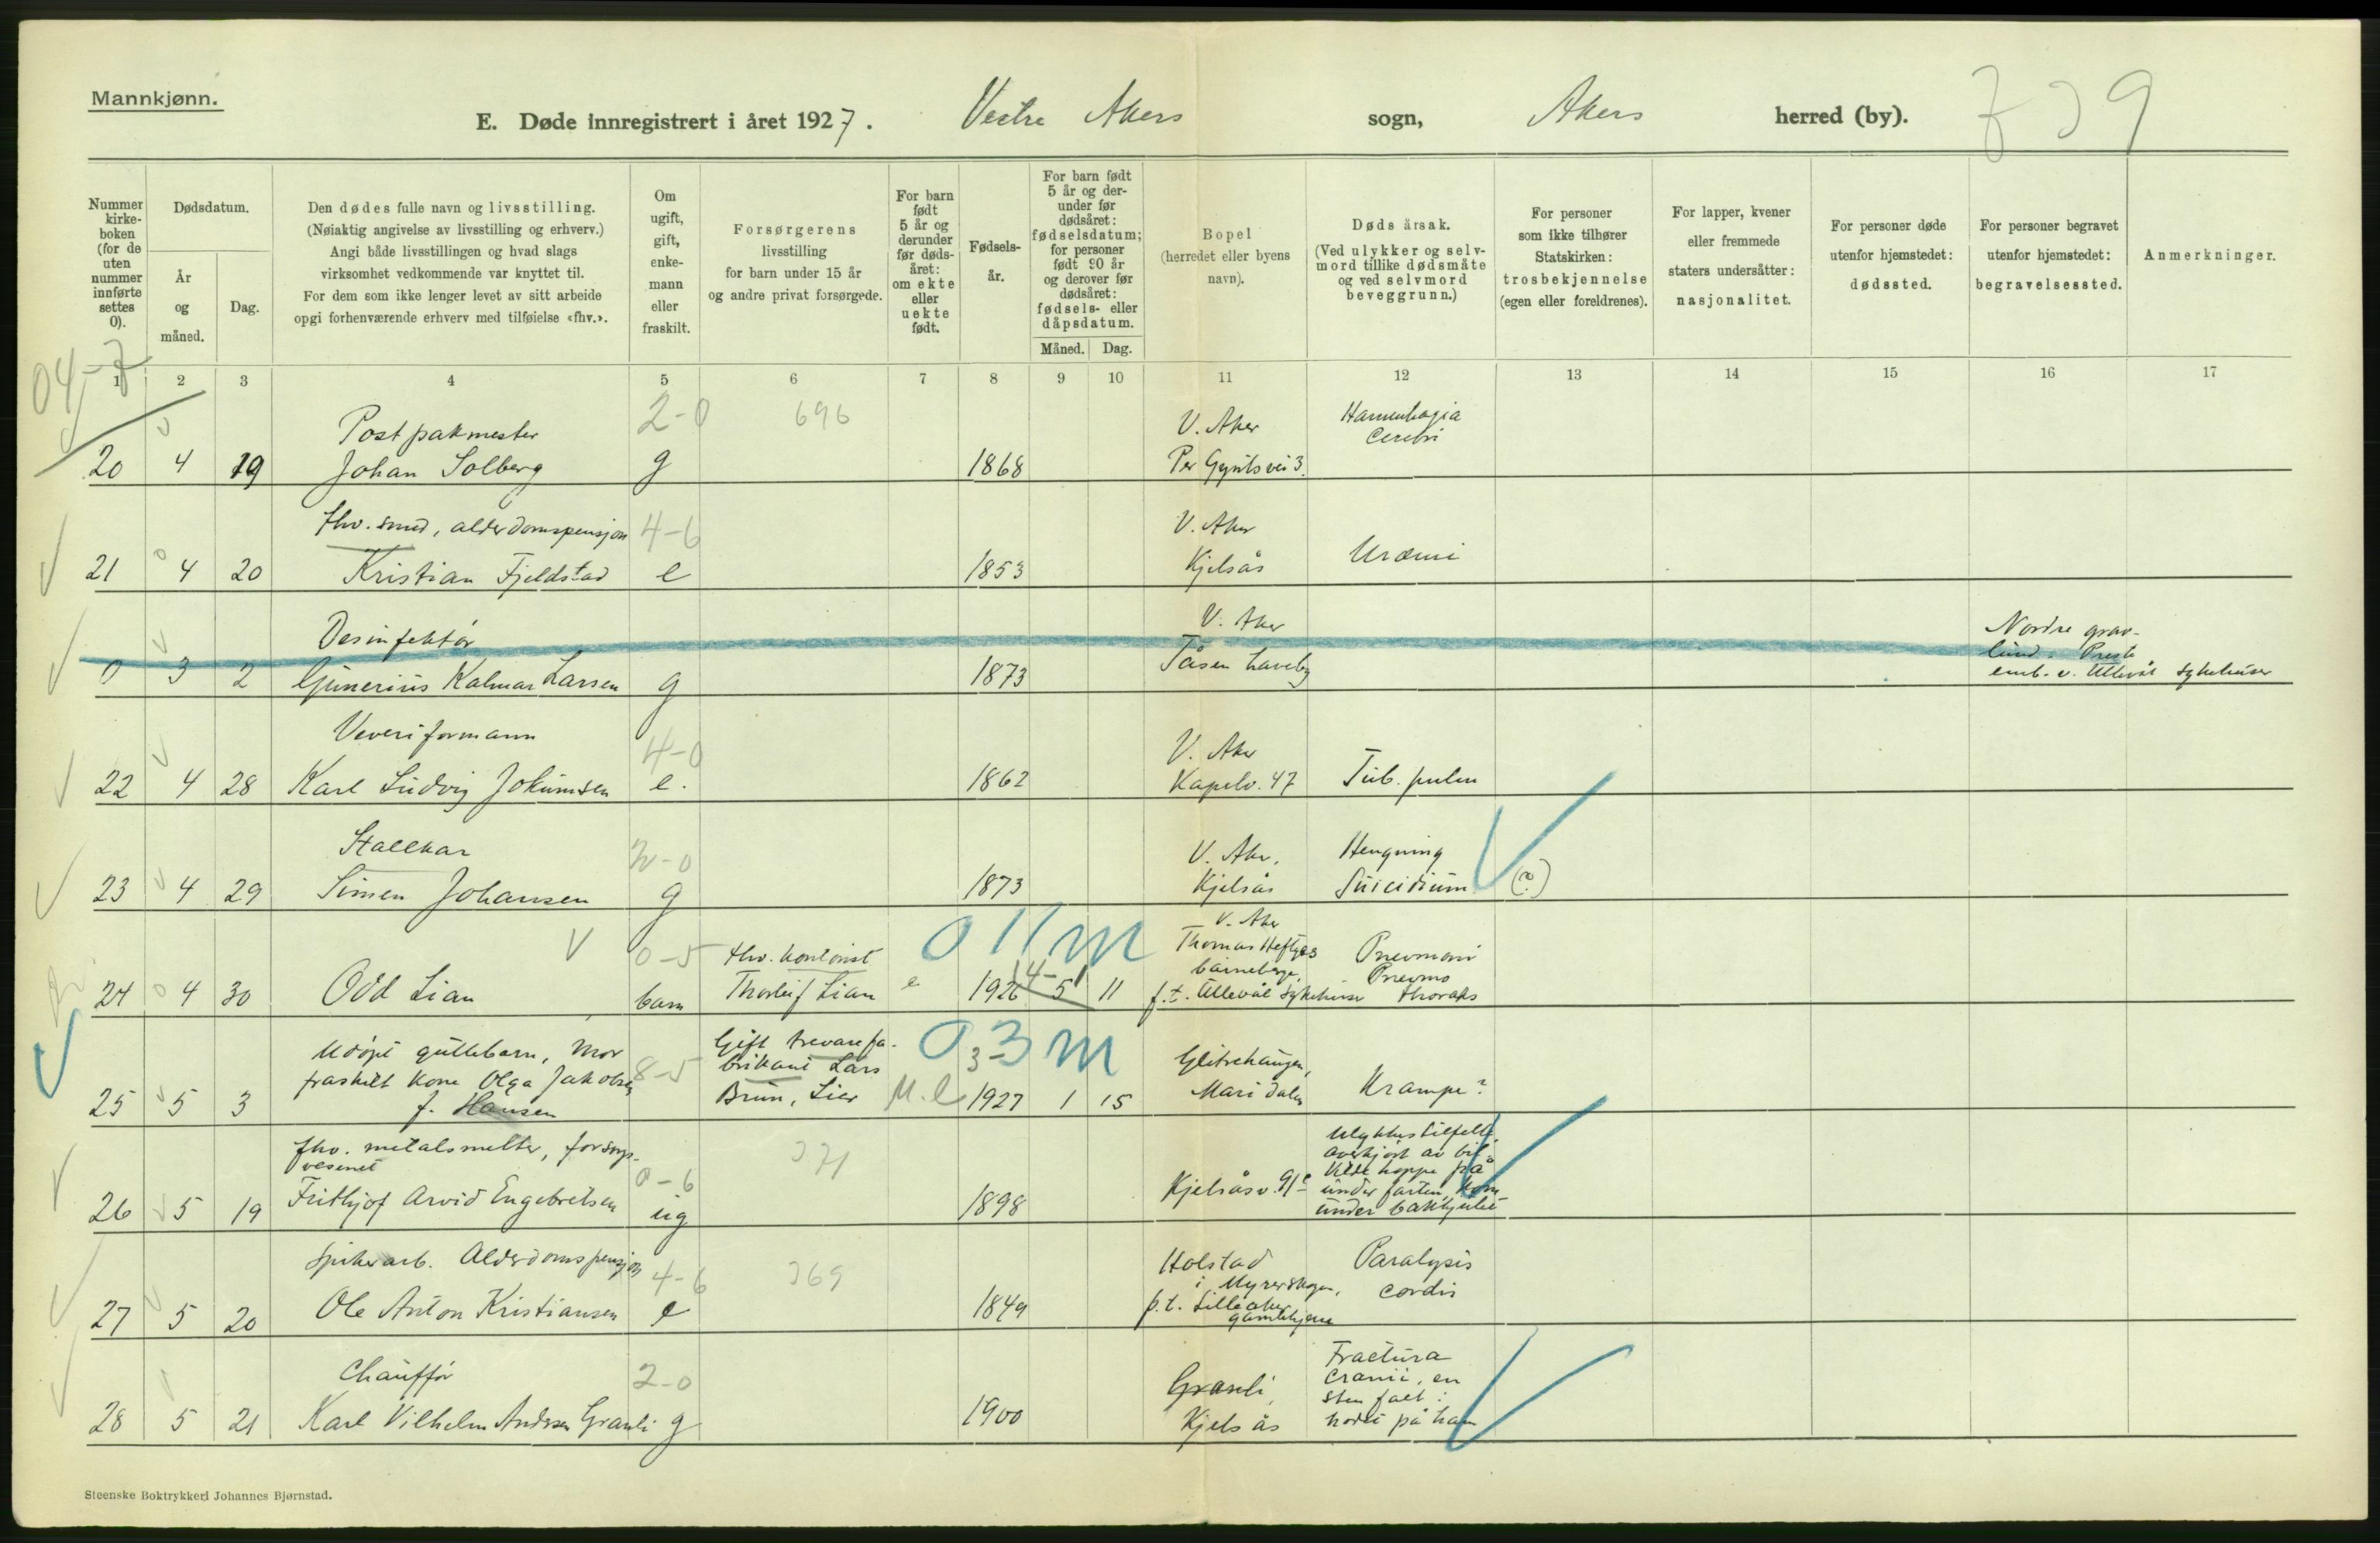 Mannkjønn.
E. Døde innregistrert i året 1927. Vestre Akers sogn, Akers herred (by).
Nummer kirke-boken (for de uten nummer innførte settes 0).
Dødsdatum.
År og måned.
Dag.
Den dødes fulle navn og livsstilling.
(Nøiaktig angivelse av livsstilling og erhverv.)
Angi både livsstillingen og hvad slags
virksomhet vedkommende var knyttet til.
For dem som ikke lenger levet av sitt arbeide
opgi forhenværende erhverv med tilføielse «fhv.».
Om ugift, gift, enke-mann eller fraskilt.
Forsørgerens
livsstilling
for barn under 15 år
og andre privat forsørgede.
For barn født 5 år og derunder før døds-året: om ekte eller uekte født.
Fødsels-år.
For barn født 5 år og der-under før dødsåret: fødselsdatum; for personer født 90 år og derover før dødsåret: fødsels- eller dåpsdatum.
Måned. Dag.
Bopel
(herredet eller byens
navn).
Døds årsak.
(Ved ulykker og selv-
mord tillike dødsmåte
og ved selvmord
beveggrunn.)
For personer
som ikke tilhører
Statskirken:
trosbekjennelse
(egen eller foreldrenes).
For lapper, kvener
eller fremmede
staters undersåtter:
nasjonalitet.
For personer døde
utenfor hjemstedet:
dødssted.
For personer begravet
utenfor hjemstedet:
begravelsessted.
Anmerkninger.
04-7
1 2 3 4 5 6 7 8 9 10 11 12 13 14 15 16 17
Postpakmester 2-0 696 V. Aker
Cerebri
20 4 19 Johan Solberg g 1868 Per Gyntsvei 3.
fhv. smed, alderdomspensjon 4-6 V. Aker
21 4 20 Kristian Fjeldstad e 1853 Kjelsås Uræmi
Desinfektør V. Aker Nordre grav-
lund. Preste
0 3 2 Gunerius Kalmar Larsen g 1873 Tåsen haveby emb. v. Ullevål sykehuser
Veveriformann 4-0 V. Aker
22 4 28 Karl Ludvig Jokumsen e. 1862 Kapelv. 47 Tub. pulm
Stallkar 2-0 V. Aker, Hengning
23 4 29 Simen Johansen g 1873 Kjelsås Suicidium (?)
0 11 m V. Aker
0-5 fhv. kontorist Thomas Heftyes Pneumoni
barnehage, Pneumo
24 4 30 Odd Lian barn Thorleif Lian e 1926 5 11 p.t. Ullevål Sykehuse thoraks
Udøpt guttebarn, mor Gift trevarefa- 0 3 m Glitrehaugen,
fraskilt kone Olga Jakobsen 8-5 brikant Lars 3-
25 5 3 f. Hansen Brun, Lier M.l 1927 1 15 Maridalen Krampe?
fhv. metalsmelter, forsorgs- 371 Ulykkestilfelle.
vesenet 0-6 Overkjørt av bil
Vilde hoppe på
26 5 19 Frithjof Arvid Engebretsen ug 1898 Kjelsåsv. 91 under farten, kom
under bakhjulet
Spikerarb. Alderdomspensjon 4-6 369 Holstad Paralysis
i Myrerskogen, cordis
27 5 20 Ole Anton Kristiansen e 1849 p.t. Lilleaker
gamlehjem
Chauffør 2-0 Granli, Fractura
Cranii, en
sten falt i
28 5 21 Karl Vilhelm Andrsen Granli g 1900 Kjelsås hodet på ham
Steenske Boktrykkeri Johannes Bjørnstad.